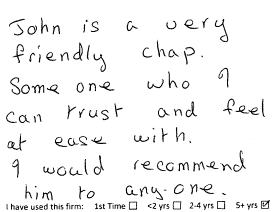 John is a very
friendly chap.
Some one who I
can trust and feel
at ease with.
I would recommend
him to any-one.
I have used this firm: 1st Time ☐ <2 yrs ☐ 2-4 yrs ☐ 5+ yrs ☑